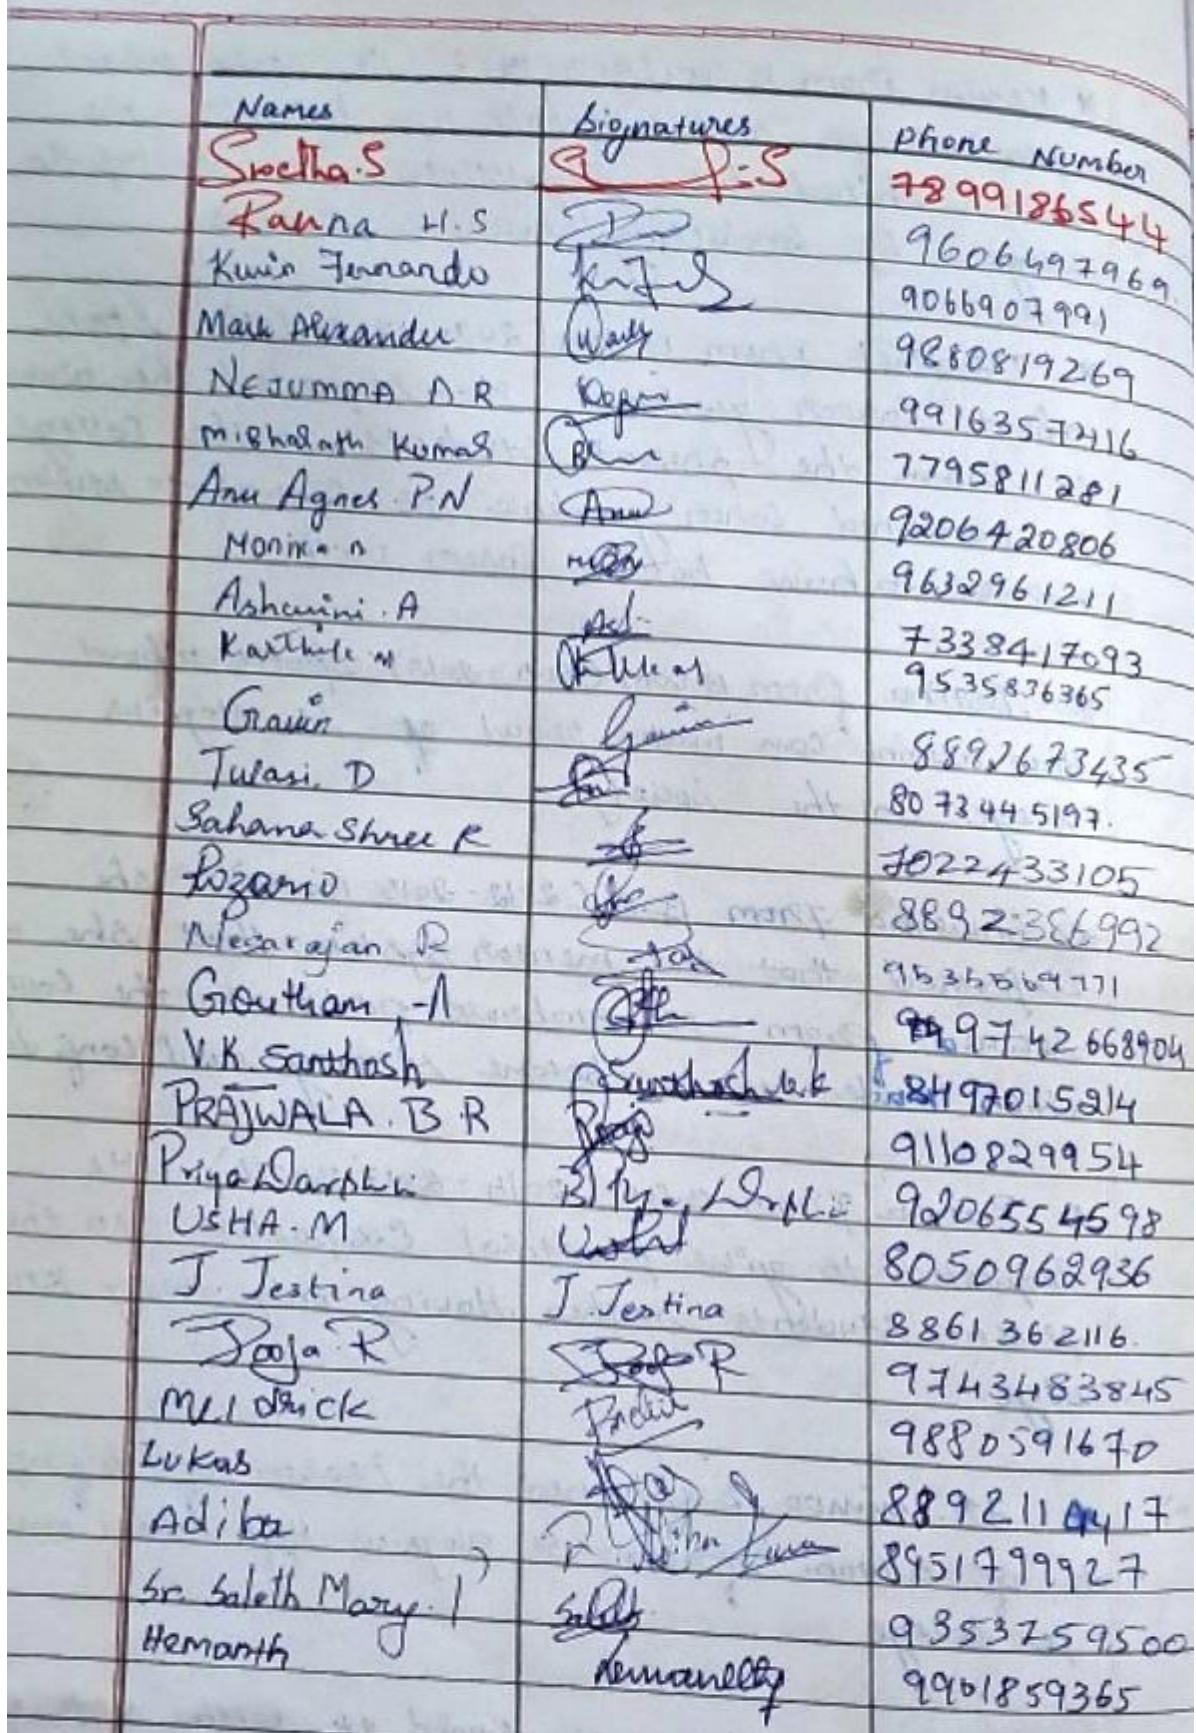 Names Signatures Phone Number
Sroetha.S S 7899186544
Ranna H.S 9606497969.
Kevin Fernando 9066907991
Mark Alexander 9880819269
NEJUMMA A.R 9916357416
Misharath Kumar 7795811281
Anu Agnes P.N Anu 9206420806
Monika B 9632961211
Ashwini.A Ash 7338417093
Karthik M 9535836365
Gavin Gavin 8892673435
Tulasi. D 8073445197.
Sahana Shree R 7022433105
Rozario 8892386992
R 9535569771
Goutham.A 9742668904
V.K. Santhosh Santhosh v.k 8497015214
PRAJWALA.B R 9110829954
Priya Darshini 9206554598
USHA.M Usha 8050962936
J. Jestina J. Jestina 8861362116.
Pooja R Pooja R 9743483845
9880591670
Lukas 8892114417
Adiba 8951799927
Sr. Saleth Mary. I Saleth 9353259500
Hemanth 9901859365